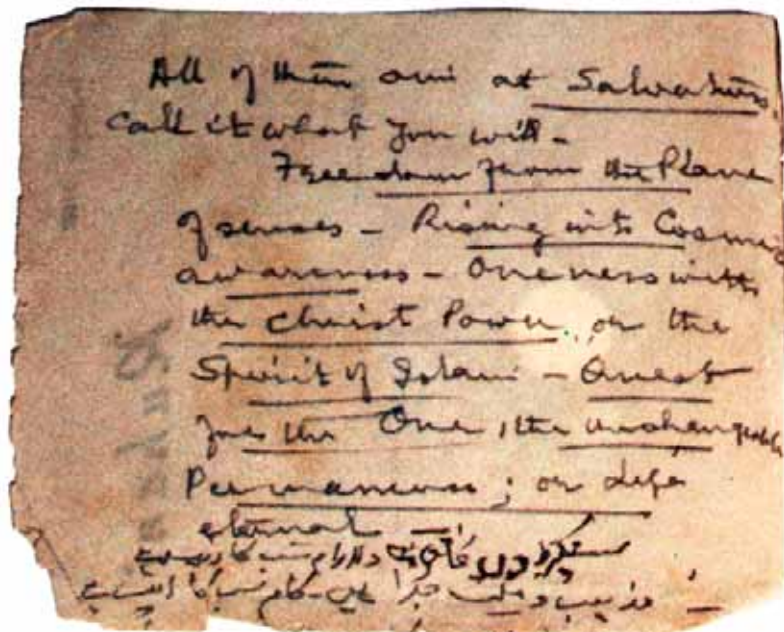 All of them aim at Salvation
Call it what you will -
Freedom from the Plane
of senses - Rising into Cosmic
awareness - Oneness with
the Christ Power, or the
Spirit of Islam - Quest
for the One, the unchangeable
Permanence; or Life
eternal -